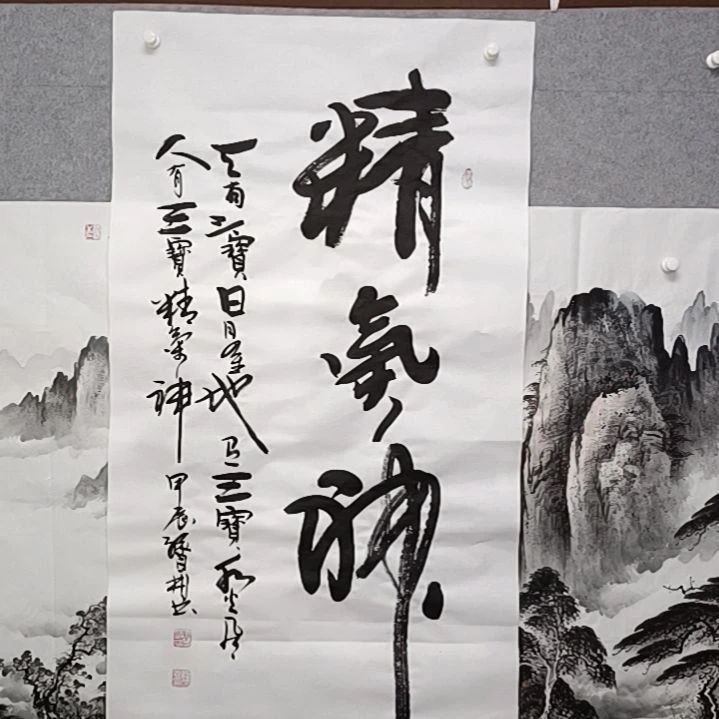 精氣神
天有三寶日月星地有三寶水火風
人有三寶精氣神
甲辰